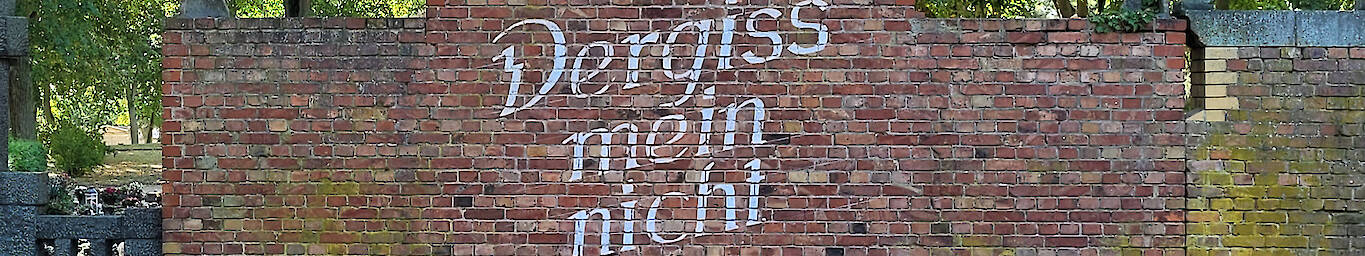 Vergiss
mein
nicht